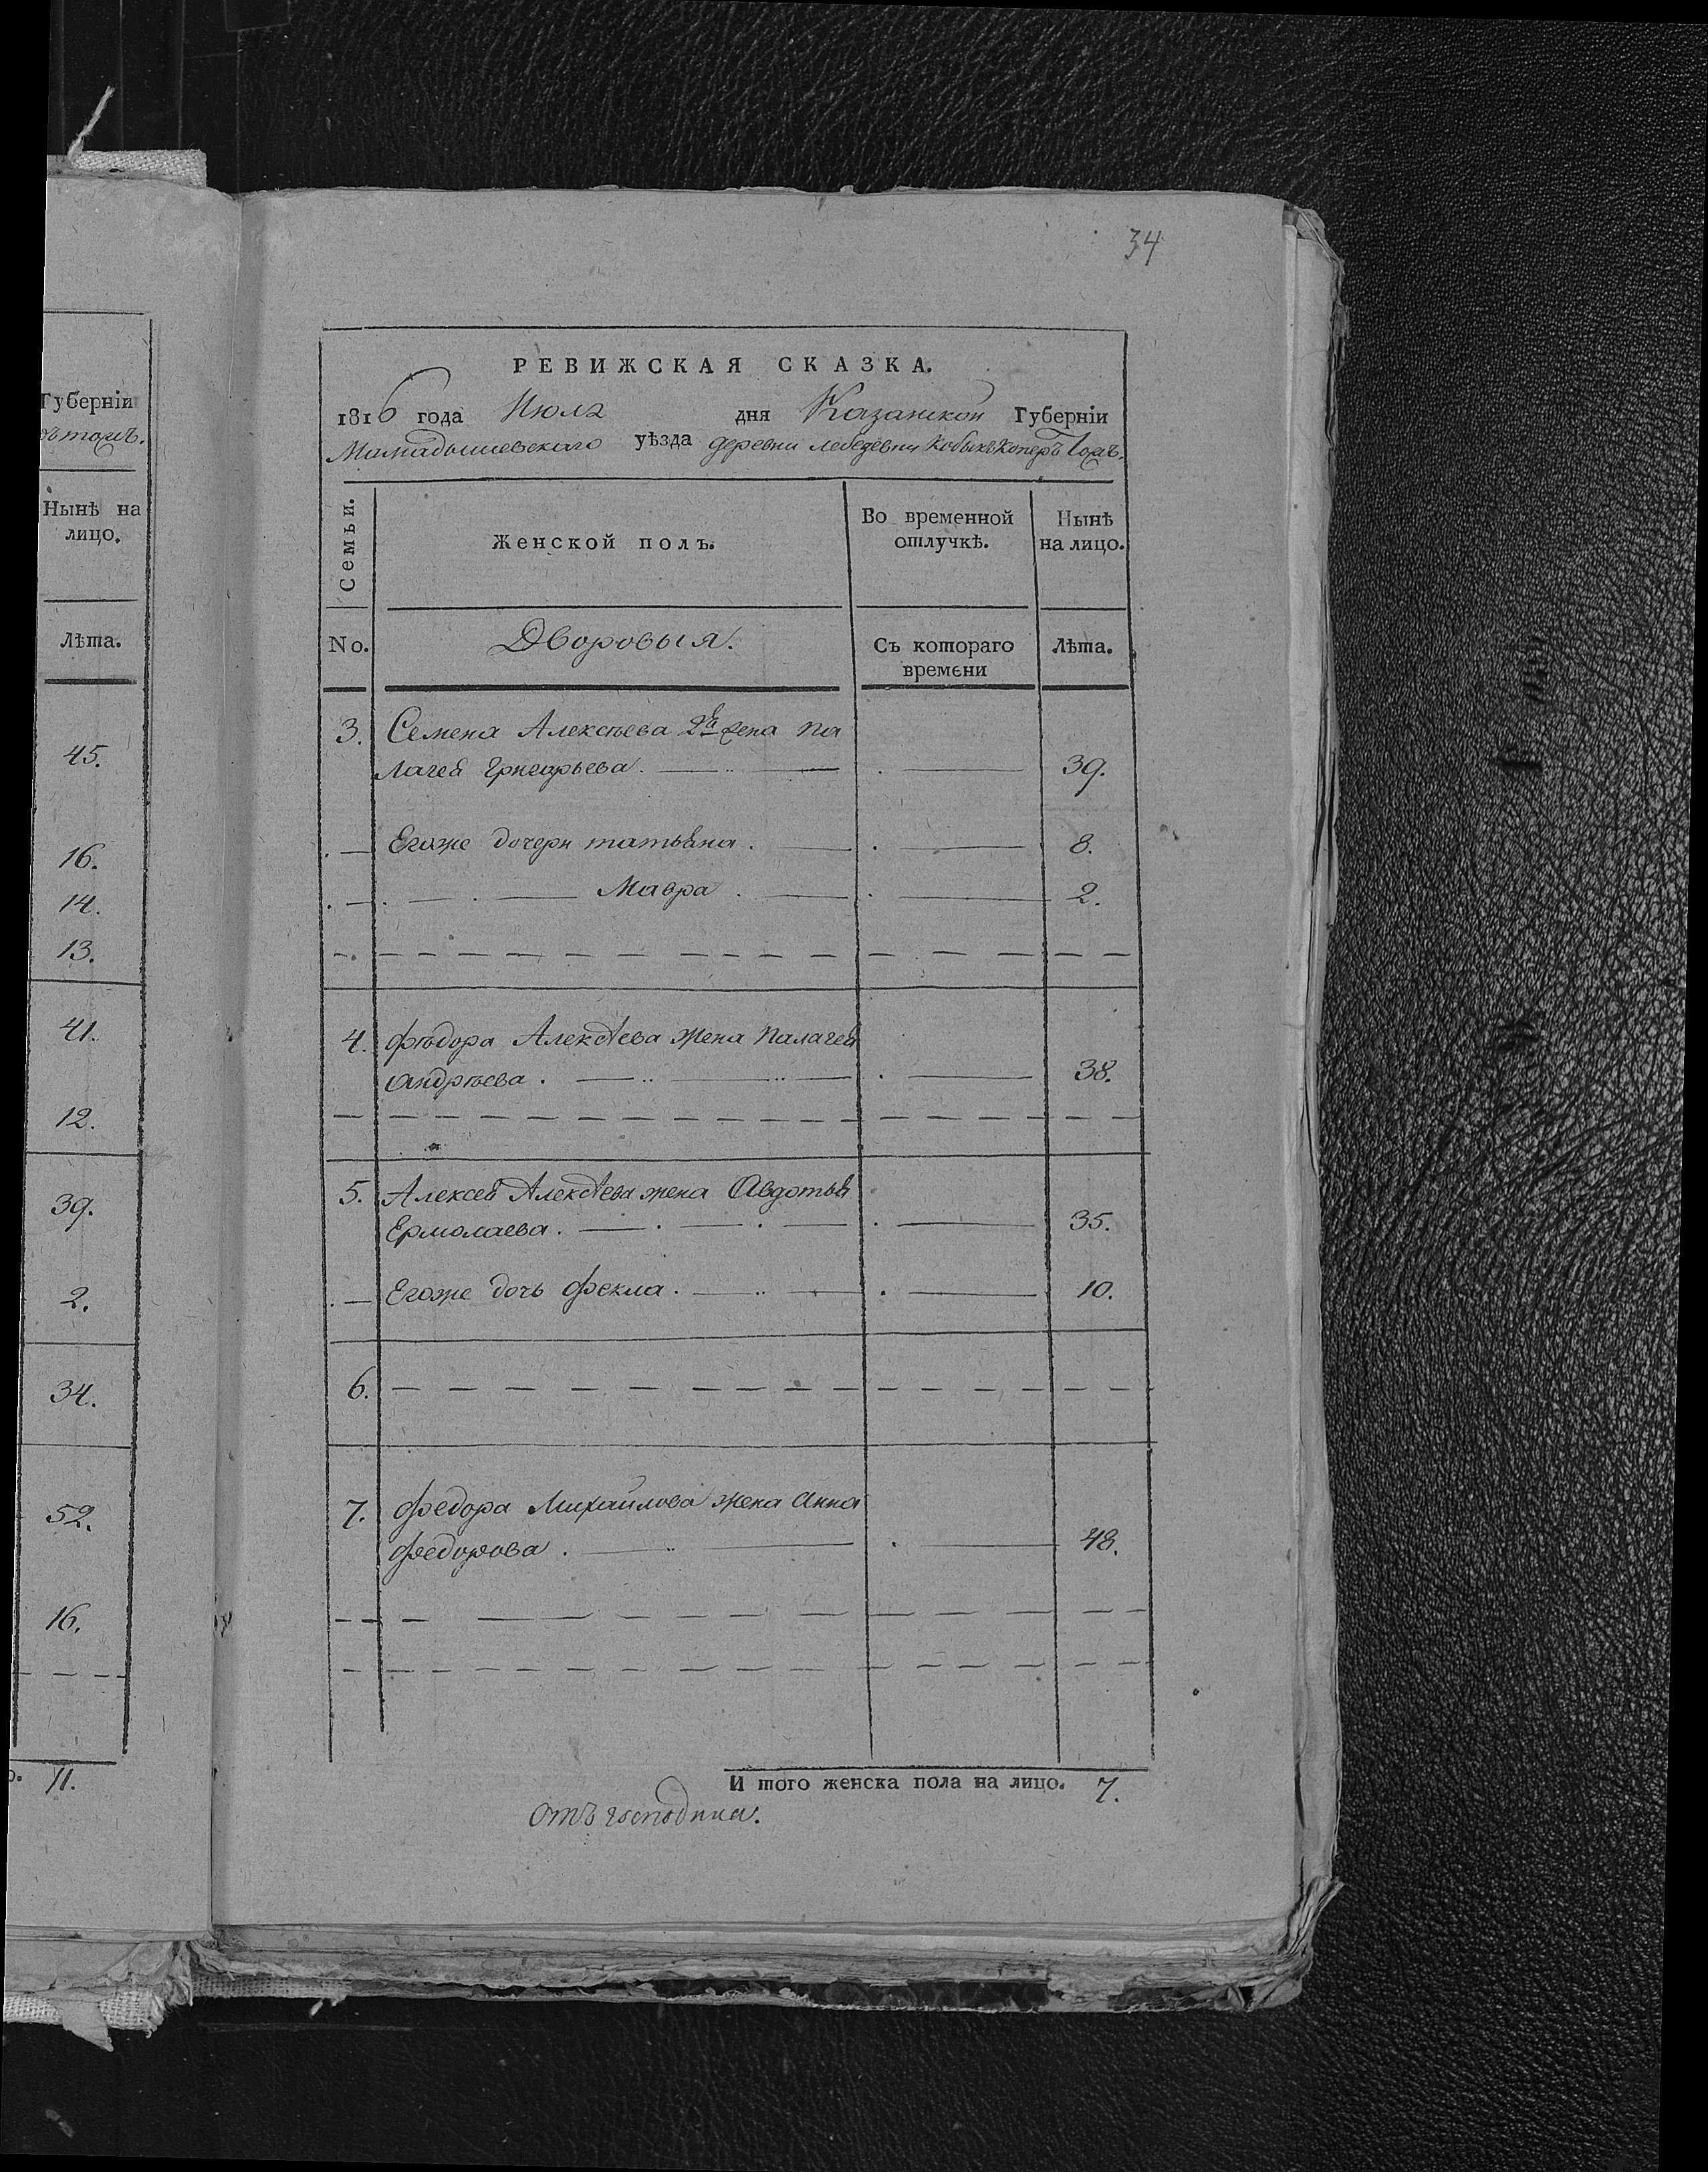 Губерніи
Нынѣ на
лицо.
Лѣта.
45.
16.
14.
13.
41.
12.
39.
2.
34.
52.
16.
11.
34
РЕВИЖСКАЯ СКАЗКА.
1816 года Июля дня Казанской Губерніи
Мамадышевскаго уѣзда деревни лебедевки
Семьи. Женской полъ. Во временной отлучкѣ. Нынѣ на лицо.
No. Дворовыя. Съ котораго времени Лѣта.
3. Семена Алексѣева 2я жена па
лагея Григорьева. 39.
Егоже дочери татьяна. 8.
Мавра. 2.
4. Фѣдора Алексѣева жена палагея
андрѣева. 38.
5. Алексея Алексѣева жена Авдотья
Ермолаева. 35.
Егоже дочь Фекла. 10.
6.
7. Федора Михайлова жена анна
Федорова. 48.
И того женска пола на лицо. 7.